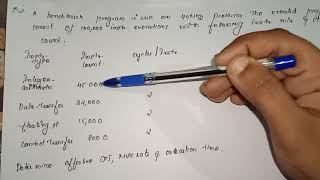 A benchmark program is run on 40MHz processor. The executed program
consist of 100,000 instr. executions with following instr. mix & clock
count.
Instr. Instr. cycles/Instr
type count
Integer 45000
arithmetic
Data transfer 32,000 2
floating pt 15,000 2
Control transfer 8000 2
Determine effective CPI, MIPS rate & execution time.